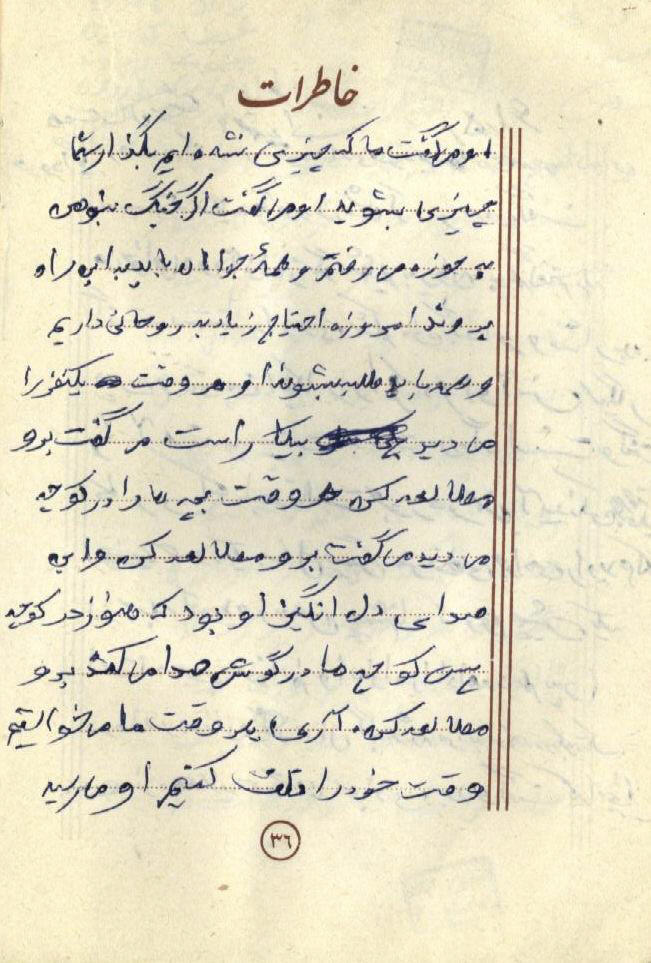 خاطرات
او میگفت ما که چیزی نشده ایم بگذار شما
چیزی بشوید او میگفت اگر جنگ نبود من
به حوزه می رفتم و همهٔ جوانان باید به این راه
بروند امروزه احتیاج زیاد به روحانی داریم
و همه باید طلبه بشوند او هر وقت یکنفر را
می دید بیکار است می گفت برو
مطالعه کن هر وقت بچه ها را در کوچه
می دید می گفت برو مطالعه کن و این
صدای دل انگیز او بود که هنوز در کوچه
کوچه ها در گوش صدا می کند برو
مطالعه کن. آری هر وقت ما می خواستیم
وقت خود را تلف کنیم او می رسید
۳۶